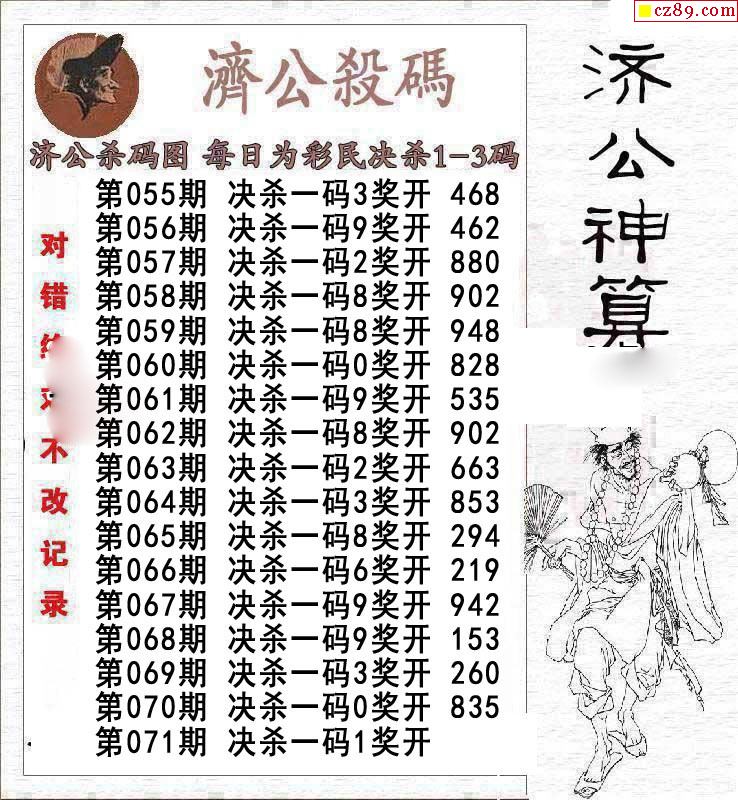 cz89.com
濟公殺碼
济公杀码图 每日为彩民决杀1-3码
第055期 决杀一码3奖开 468
第056期 决杀一码9奖开 462
第057期 决杀一码2奖开 880
第058期 决杀一码8奖开 902
第059期 决杀一码8奖开 948
第060期 决杀一码0奖开 828
第061期 决杀一码9奖开 535
第062期 决杀一码8奖开 902
第063期 决杀一码2奖开 663
第064期 决杀一码3奖开 853
第065期 决杀一码8奖开 294
第066期 决杀一码6奖开 219
第067期 决杀一码9奖开 942
第068期 决杀一码9奖开 153
第069期 决杀一码3奖开 260
第070期 决杀一码0奖开 835
第071期 决杀一码1奖开
对错不改记录
济公神算